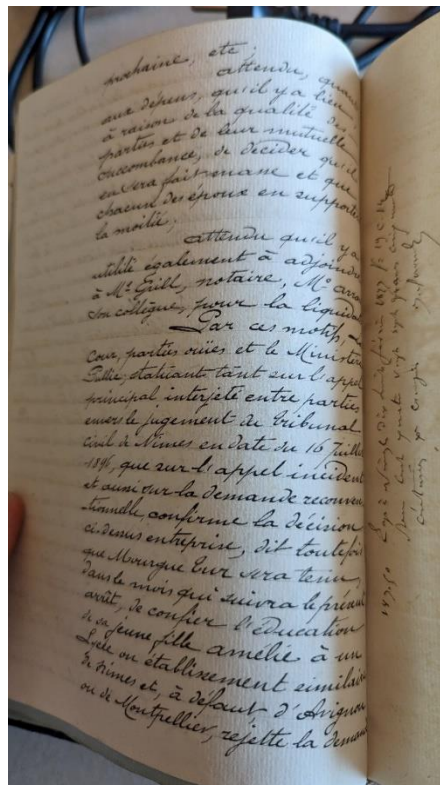 prochaine, etc;
attendu, quant
aux dépens, qu'il y a lieu,
à raison de la qualité des
parties et de leur mutuelle
succombance, de décider qu'il
en sera fait masse et que
chacun des époux en supporte
la moitié;
attendu qu'il y a
utilité également à adjoindre
à Me Grill, notaire, Me
son collègue, pour la liquida
Par ces motifs, L
Cour, parties ouïes et le Ministère
Public, statuant tant sur l'appel
principal interjeté entre parties
envers le jugement du Tribunal
civil de Nîmes en date du 16 Juillet
1896, que sur l'appel incident
et aussi sur la demande reconven
tionnelle, confirme la décision
ci-dessus entreprise, dit toutefois
que Mourgue Eur sera tenu,
dans le mois qui suivra le présent
arrêt, de confier l'éducation
de sa jeune fille Amélie à un
Lycée ou établissement similaire
de Nîmes et, à défaut d'Avignon
ou de Montpellier, rejette la demande